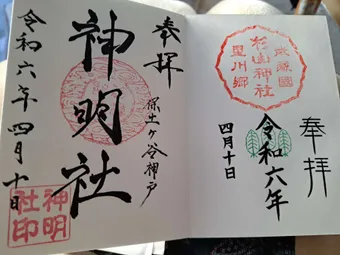 奉拝
武蔵國
杉山神社
星川郷
令和六年
四月十日
奉拝
保土ヶ谷神戸
神明社
神明
社印
令和六年四月十日